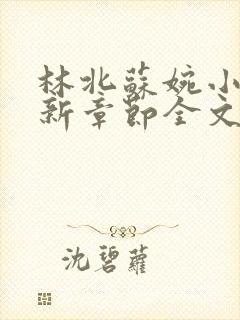 林北蘇婉小
新章節全文
沈碧蘿